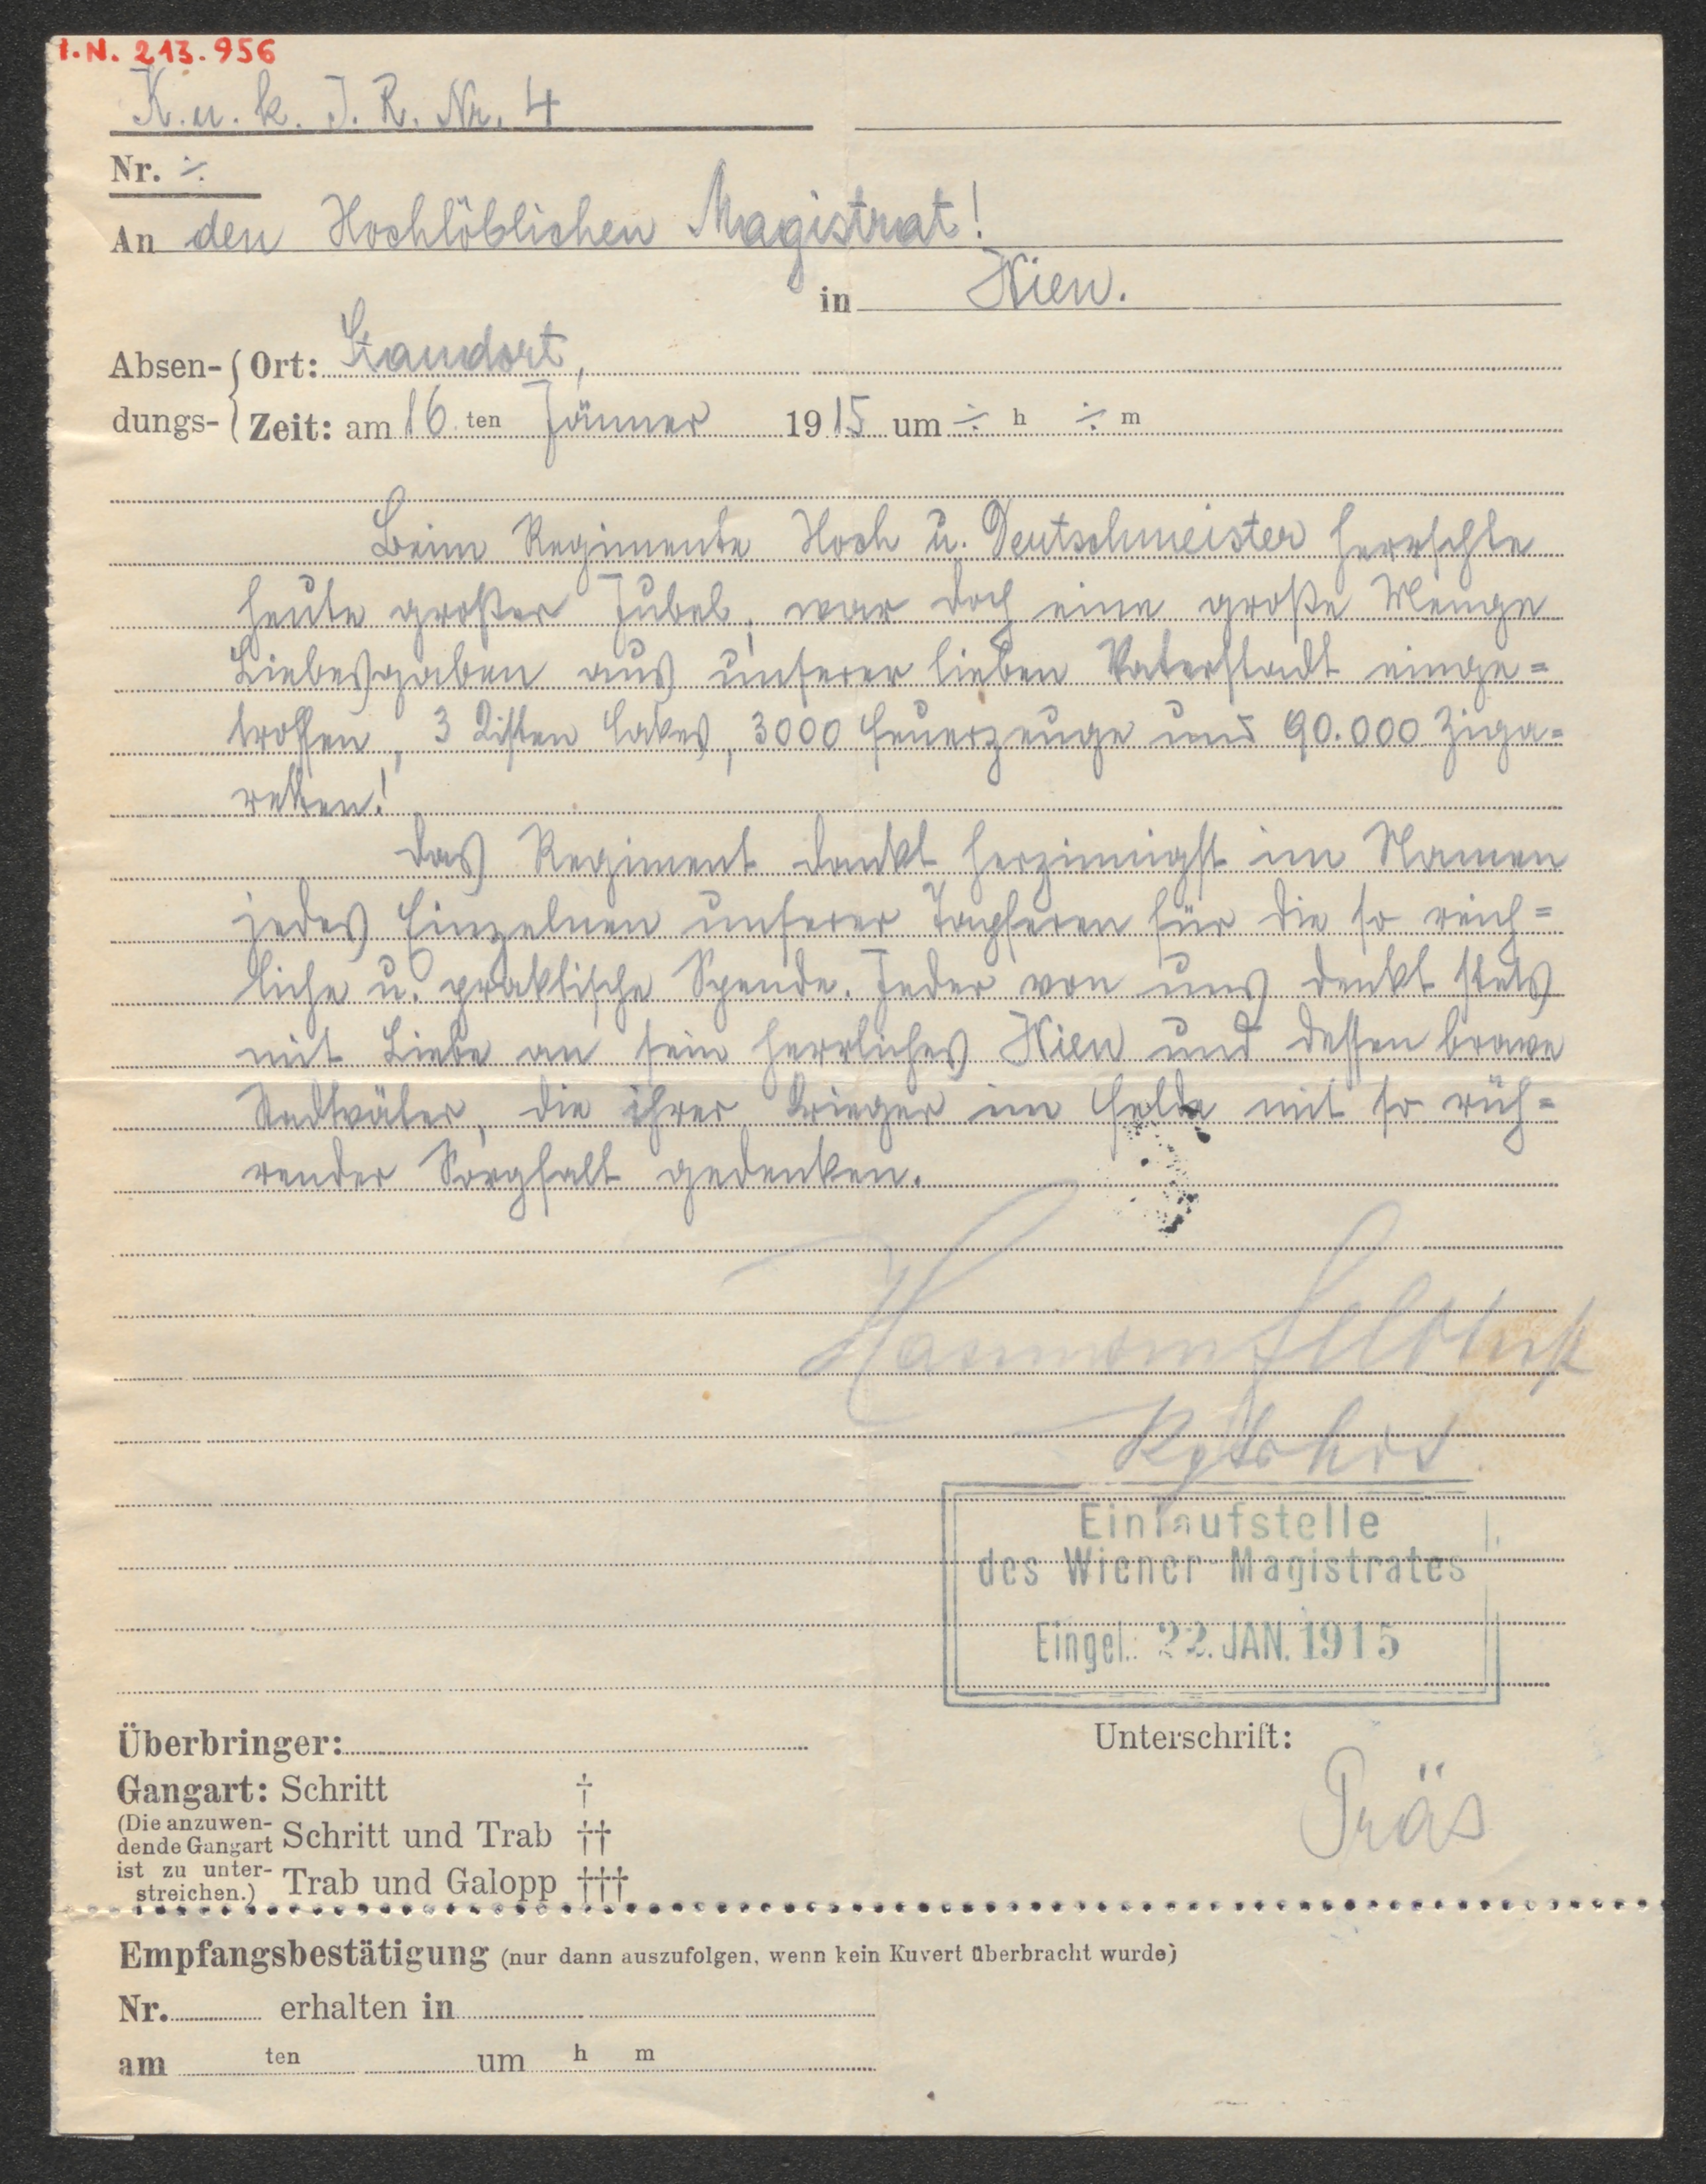 I.N. 213.956
K. u. k. I. R. Nr. 4
Nr. ÷
An den Hochlöblichen Magistrat!
in Wien.
Absen- Ort: Standort,
dungs- Zeit: am 16 ten Jänner 1915 um ÷ h ÷ m
Beim Regimente Hoch u. Deutschmeister herrschte
heute großer Jubel, war doch eine große Menge
Liebesgaben aus unserer lieben Vaterstadt einge=
troffen, 3 Kisten Cakes, 3000 Feuerzeuge und 90.000 Ziga=
retten!
Das Regiment dankt herzinnigst im Namen
jedes Einzelnen unserer Tapferen für die so reich=
liche u. praktische Spende. Jeder von uns denkt stets
mit Liebe an sein herrliches Wien und dessen brave
Stadtväter, die ihrer Krieger im Felde mit so rüh=
render Sorgfalt gedenken.
Einlaufstelle
des Wiener Magistrates
Eingel.: 22. JAN. 1915
Überbringer:
Unterschrift:
Gangart: Schritt †
(Die anzuwen-
dende Gangart Schritt und Trab ††
ist zu unter-
streichen.) Trab und Galopp †††
Präs
Empfangsbestätigung (nur dann auszufolgen, wenn kein Kuvert überbracht wurde)
Nr. erhalten in
am ten um h m